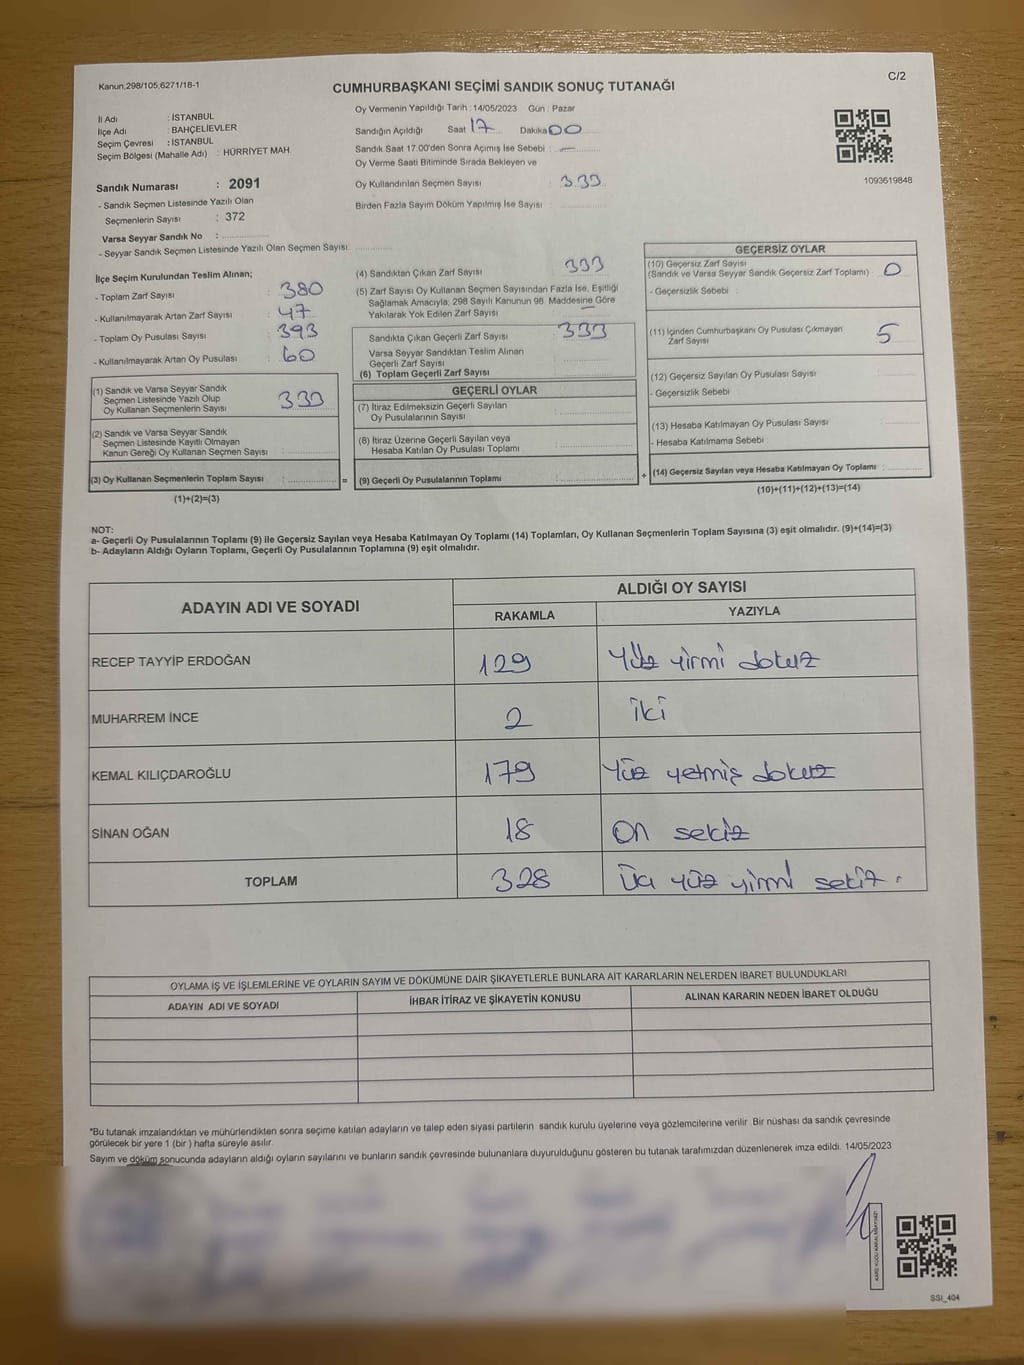 Kanun,298/105,6271/18-1
C/2
CUMHURBAŞKANI SEÇİMİ SANDIK SONUÇ TUTANAĞI
İl Adı : İSTANBUL
İlçe Adı : BAHÇELİEVLER
Seçim Çevresi : İSTANBUL
Seçim Bölgesi (Mahalle Adı) : HÜRRİYET MAH.
Sandık Numarası : 2091
- Sandık Seçmen Listesinde Yazılı Olan
Seçmenlerin Sayısı : 372
Varsa Seyyar Sandık No :
- Seyyar Sandık Seçmen Listesinde Yazılı Olan Seçmen Sayısı:
Oy Vermenin Yapıldığı Tarih : 14/05/2023 Gün : Pazar
Sandığın Açıldığı Saat 17 Dakika 00
Sandık Saat 17.00'den Sonra Açımış İse Sebebi : —
Oy Verme Saati Bitiminde Sırada Bekleyen ve
Oy Kullandırılan Seçmen Sayısı : 333
Birden Fazla Sayım Döküm Yapılmış İse Sayısı :
1093619848
İlçe Seçim Kurulundan Teslim Alınan;
- Toplam Zarf Sayısı : 380
- Kullanılmayarak Artan Zarf Sayısı : 47
- Toplam Oy Pusulası Sayısı : 393
- Kullanılmayarak Artan Oy Pusulası : 60
(1) Sandık ve Varsa Seyyar Sandık
Seçmen Listesinde Yazılı Olup
Oy Kullanan Seçmenlerin Sayısı : 333
(2) Sandık ve Varsa Seyyar Sandık
Seçmen Listesinde Kayıtlı Olmayan
Kanun Gereği Oy Kullanan Seçmen Sayısı :
(3) Oy Kullanan Seçmenlerin Toplam Sayısı : =
(1)+(2)=(3)
(4) Sandıktan Çıkan Zarf Sayısı : 333
(5) Zarf Sayısı Oy Kullanan Seçmen Sayısından Fazla İse, Eşitliği
Sağlamak Amacıyla; 298 Sayılı Kanunun 98. Maddesine Göre
Yakılarak Yok Edilen Zarf Sayısı : —
Sandıkta Çıkan Geçerli Zarf Sayısı : 333
Varsa Seyyar Sandıktan Teslim Alınan
Geçerli Zarf Sayısı
(6) Toplam Geçerli Zarf Sayısı
GEÇERLİ OYLAR
(7) İtiraz Edilmeksizin Geçerli Sayılan
Oy Pusulalarının Sayısı :
(8) İtiraz Üzerine Geçerli Sayılan veya
Hesaba Katılan Oy Pusulası Toplamı :
(9) Geçerli Oy Pusulalarının Toplamı : +
GEÇERSİZ OYLAR
(10) Geçersiz Zarf Sayısı
(Sandık ve Varsa Seyyar Sandık Geçersiz Zarf Toplamı) : 0
- Geçersizlik Sebebi :
(11) İçinden Cumhurbaşkanı Oy Pusulası Çıkmayan
Zarf Sayısı : 5
(12) Geçersiz Sayılan Oy Pusulası Sayısı :
- Geçersizlik Sebebi :
(13) Hesaba Katılmayan Oy Pusulası Sayısı :
- Hesaba Katılmama Sebebi :
(14) Geçersiz Sayılan veya Hesaba Katılmayan Oy Toplamı :
(10)+(11)+(12)+(13)=(14)
NOT:
a- Geçerli Oy Pusulalarının Toplamı (9) ile Geçersiz Sayılan veya Hesaba Katılmayan Oy Toplamı (14) Toplamları, Oy Kullanan Seçmenlerin Toplam Sayısına (3) eşit olmalıdır. (9)+(14)=(3)
b- Adayların Aldığı Oyların Toplamı, Geçerli Oy Pusulalarının Toplamına (9) eşit olmalıdır.
ADAYIN ADI VE SOYADI
ALDIĞI OY SAYISI
RAKAMLA YAZIYLA
RECEP TAYYİP ERDOĞAN 129 Yüz yirmi dokuz
MUHARREM İNCE 2 iki
KEMAL KILIÇDAROĞLU 179 Yüz yetmiş dokuz
SİNAN OĞAN 18 On sekiz
TOPLAM 328 Üç yüz yirmi sekiz.
OYLAMA İŞ VE İŞLEMLERİNE VE OYLARIN SAYIM VE DÖKÜMÜNE DAİR ŞİKAYETLERLE BUNLARA AİT KARARLARIN NELERDEN İBARET BULUNDUKLARI
ADAYIN ADI VE SOYADI İHBAR İTİRAZ VE ŞİKAYETİN KONUSU ALINAN KARARIN NEDEN İBARET OLDUĞU
*Bu tutanak imzalandıktan ve mühürlendikten sonra seçime katılan adayların ve talep eden siyasi partilerin sandık kurulu üyelerine veya gözlemcilerine verilir. Bir nüshası da sandık çevresinde
görülecek bir yere 1 (bir ) hafta süreyle asılır.
Sayım ve döküm sonucunda adayların aldığı oyların sayılarını ve bunların sandık çevresinde bulunanlara duyurulduğunu gösteren bu tutanak tarafımızdan düzenlenerek imza edildi. 14/05/2023
SSI_404